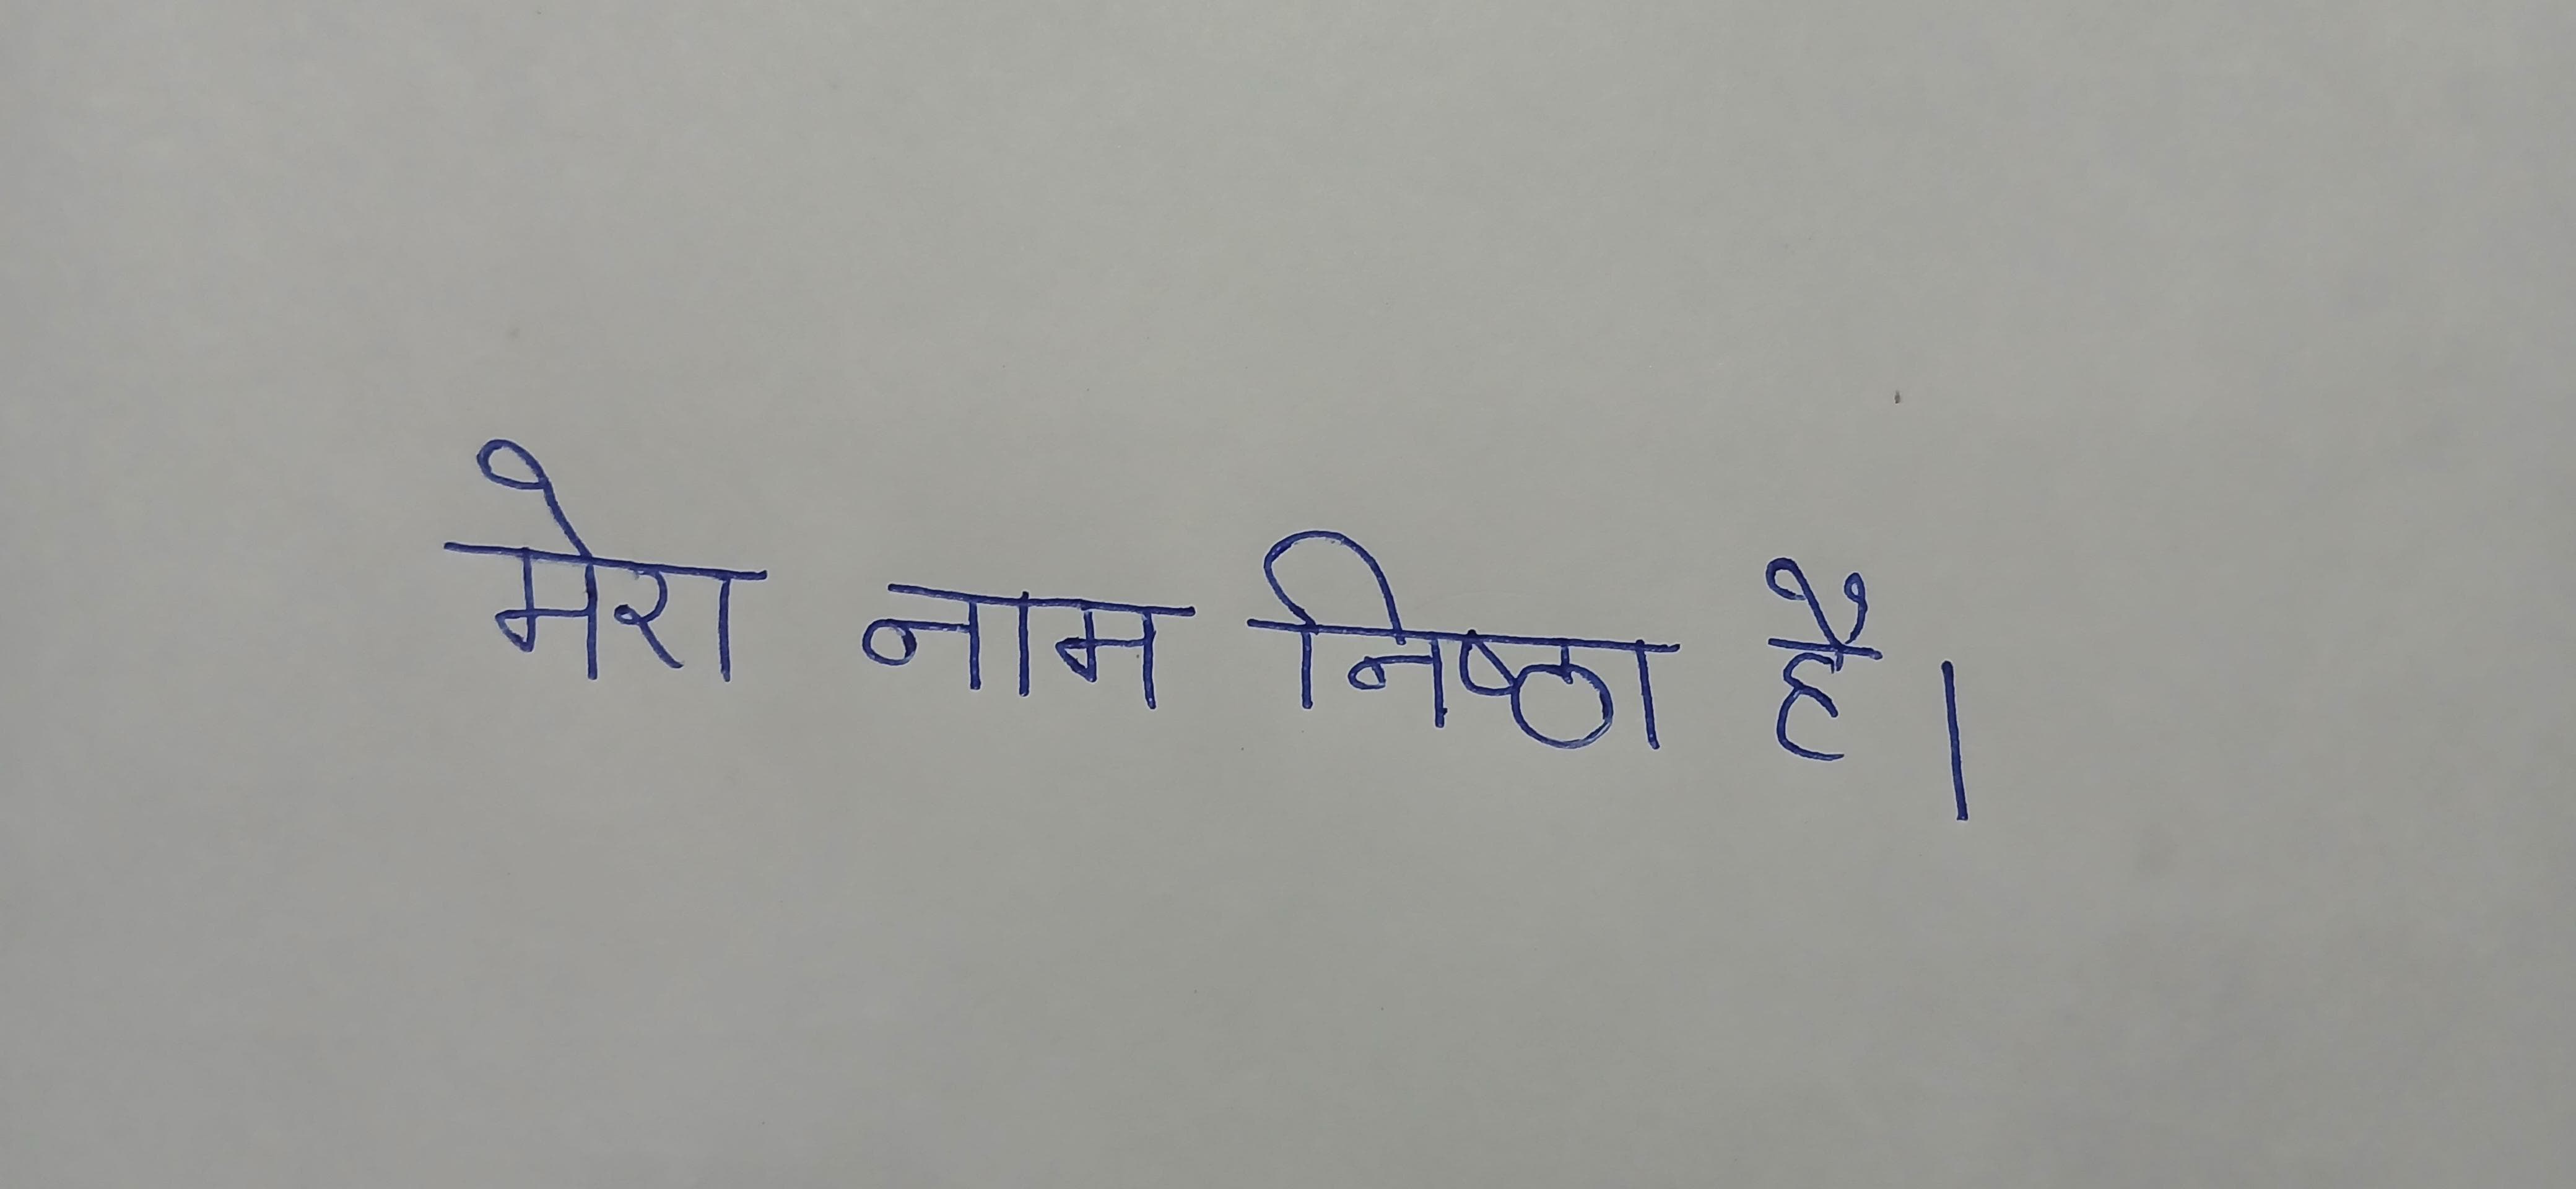 मेरा नाम निष्ठा है।